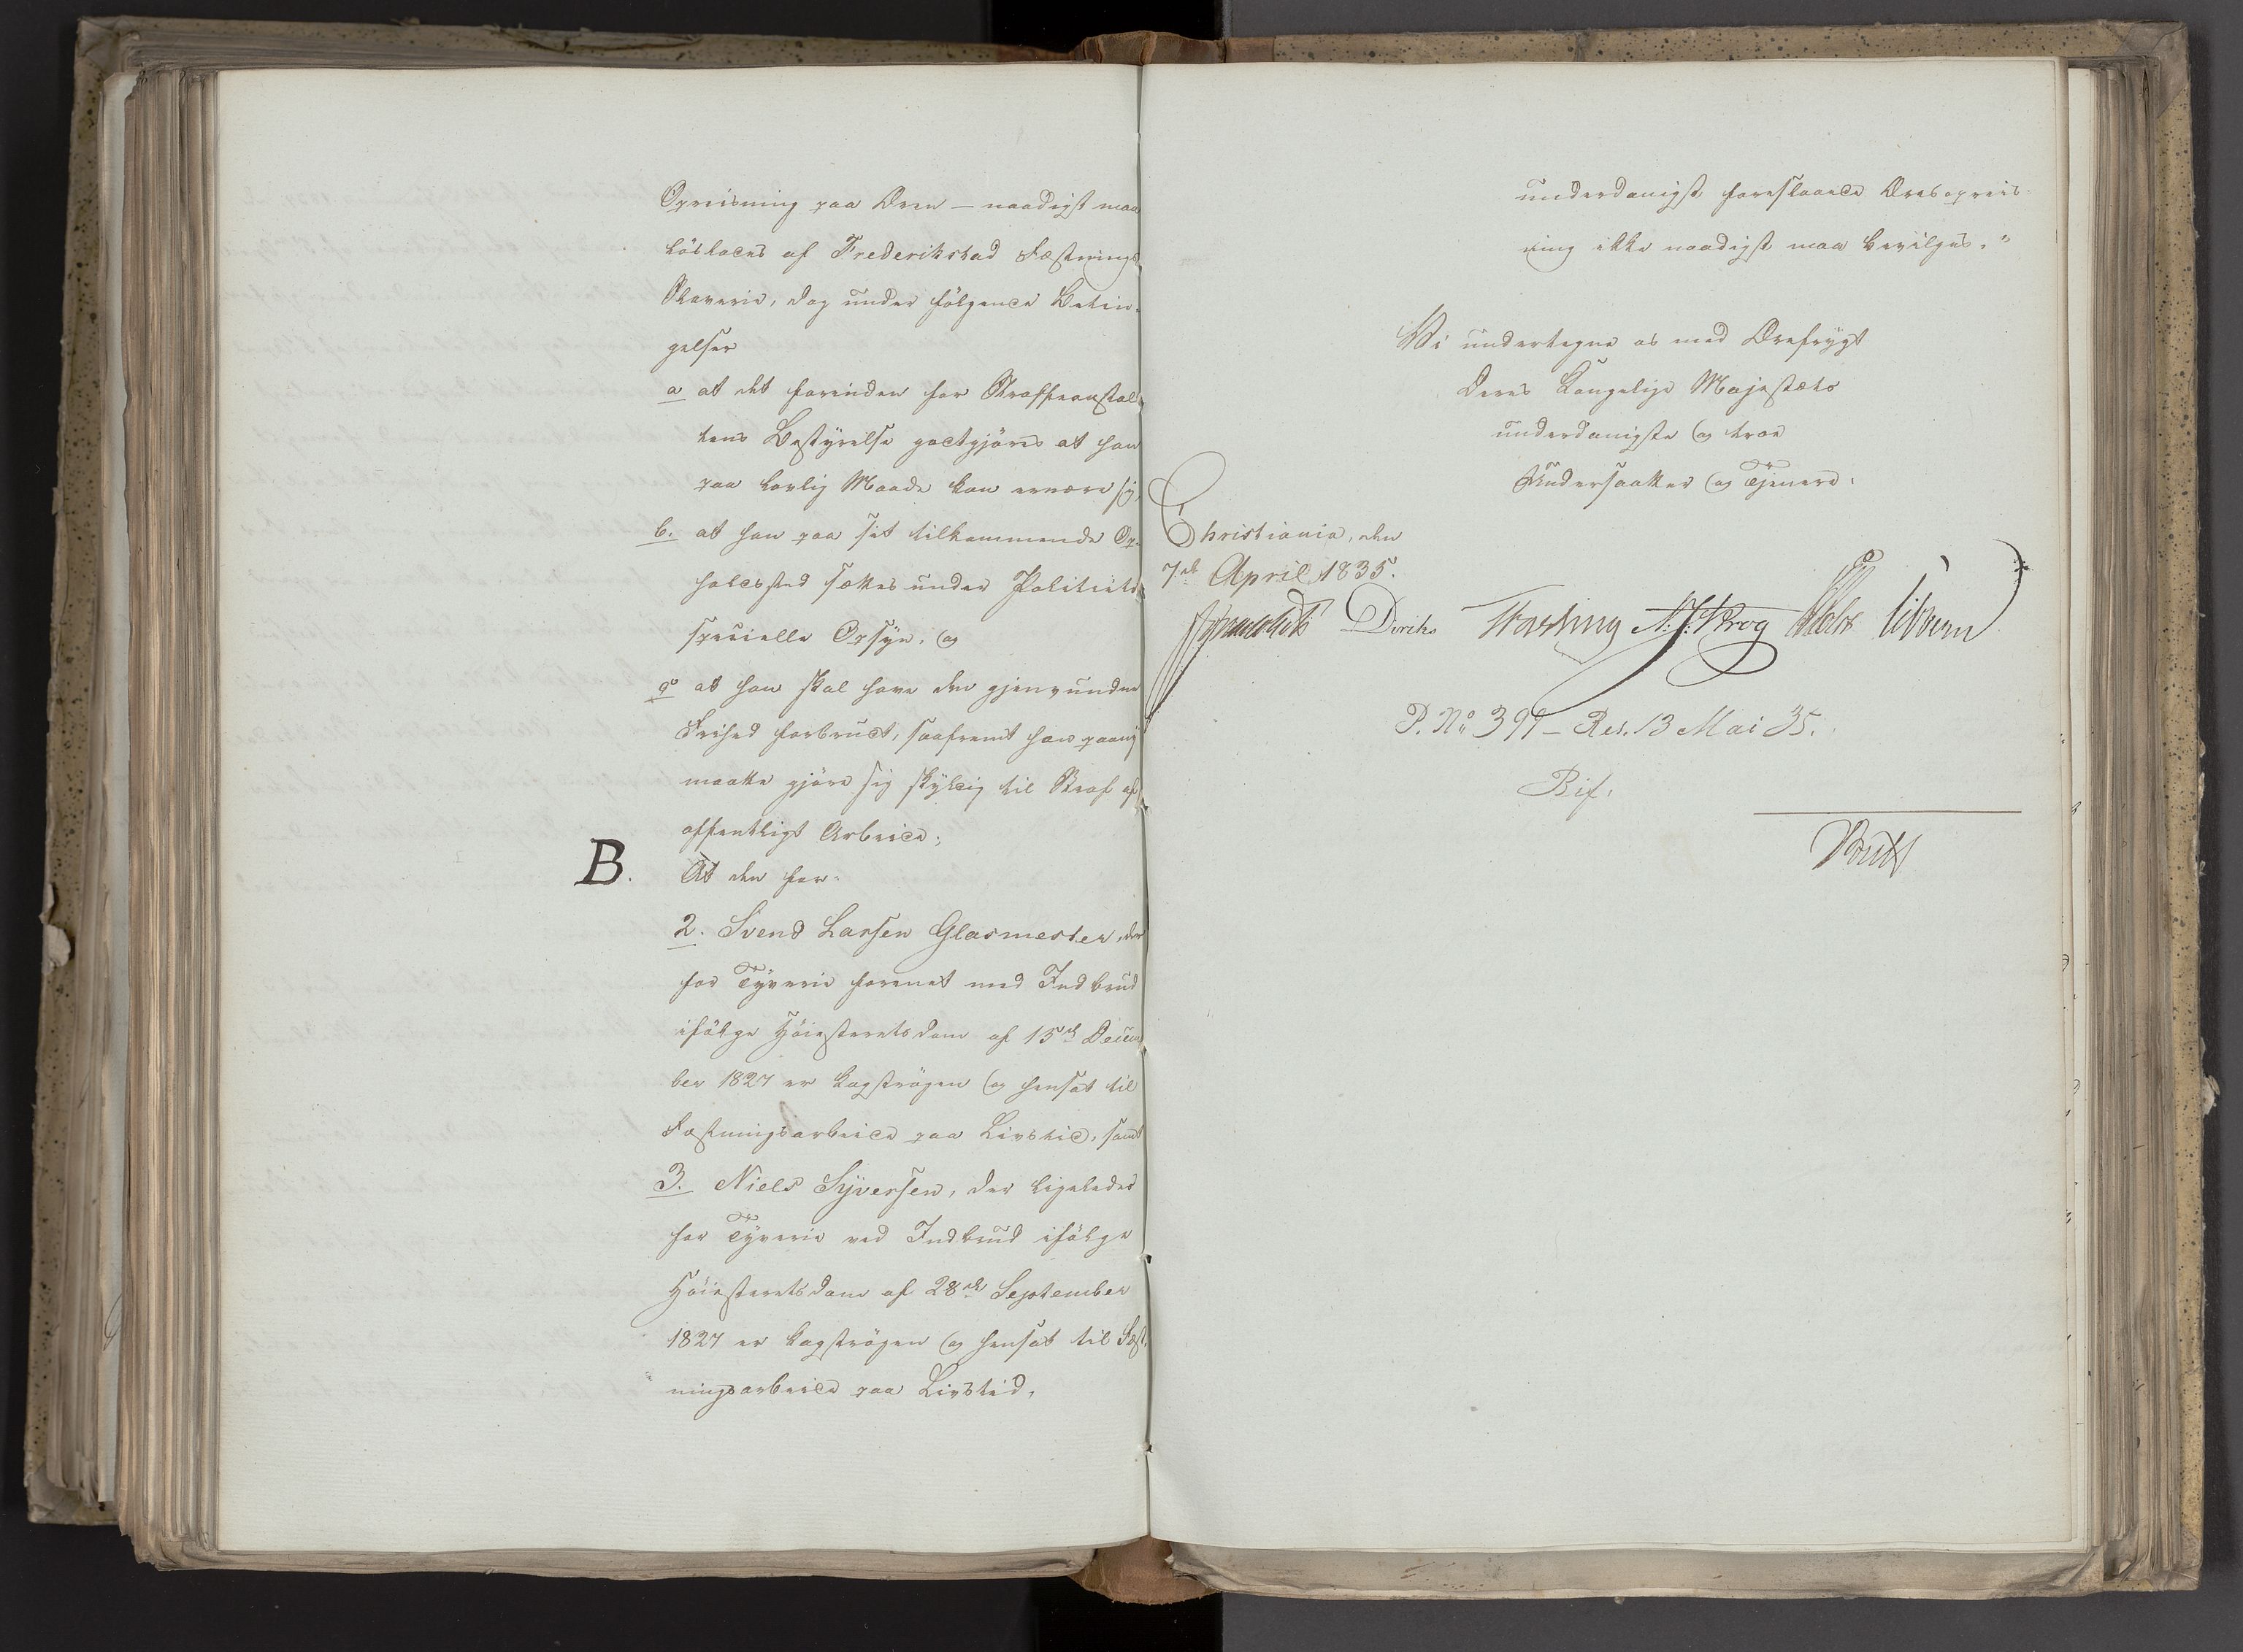 Opreisning paa Æren – naadigst maa
löslades af Frederikstad Fæstnings
Slaverie, dog under fölgende Betin-
gelser
a at det forinden for Straffeanstal-
tens Bestyrelse godtgjöres at han
paa lovlig Maade kan ernære sig,
b. at han paa sit tilkommende Op-
holdssted sættes under Politiets
specielle Opsyn, og
c at han skal have den gjenvundne
Frihed forbrudt, saafremt han paany
maatte gjöre sig skyldig til Straf af
offentligt Arbeide;
B. At den for
2. Svend Larsen Glasmester, der
for Tyverie forenet med Indbrud
ifölge Höiesteretsdom af 15de Decem
ber 1827 er kagströgen og hensat til
Fæstningsarbeide paa Livstid, samt
3. Niels Syversen, der ligeledes
for Tyverie ved Indbrud ifölge
Höiesteretsdom af 28de September
1827 er kagströgen og hensat til Fæst-
ningsarbeide paa Livstid,
underdanigst foreslaaede Æresopreis-
ning ikke naadigst maa bevilges."
Vi undertegne os med Ærefrygt
Deres Kongelige Majestæts
underdanigste og troe
Undersaatter og Tjenere.
Christiania, den
7de April 1835.
Diriks Fasting N. J. Krog Holst Sibbern
P. No 399 – Res. 13 Mai 35.
Bif.